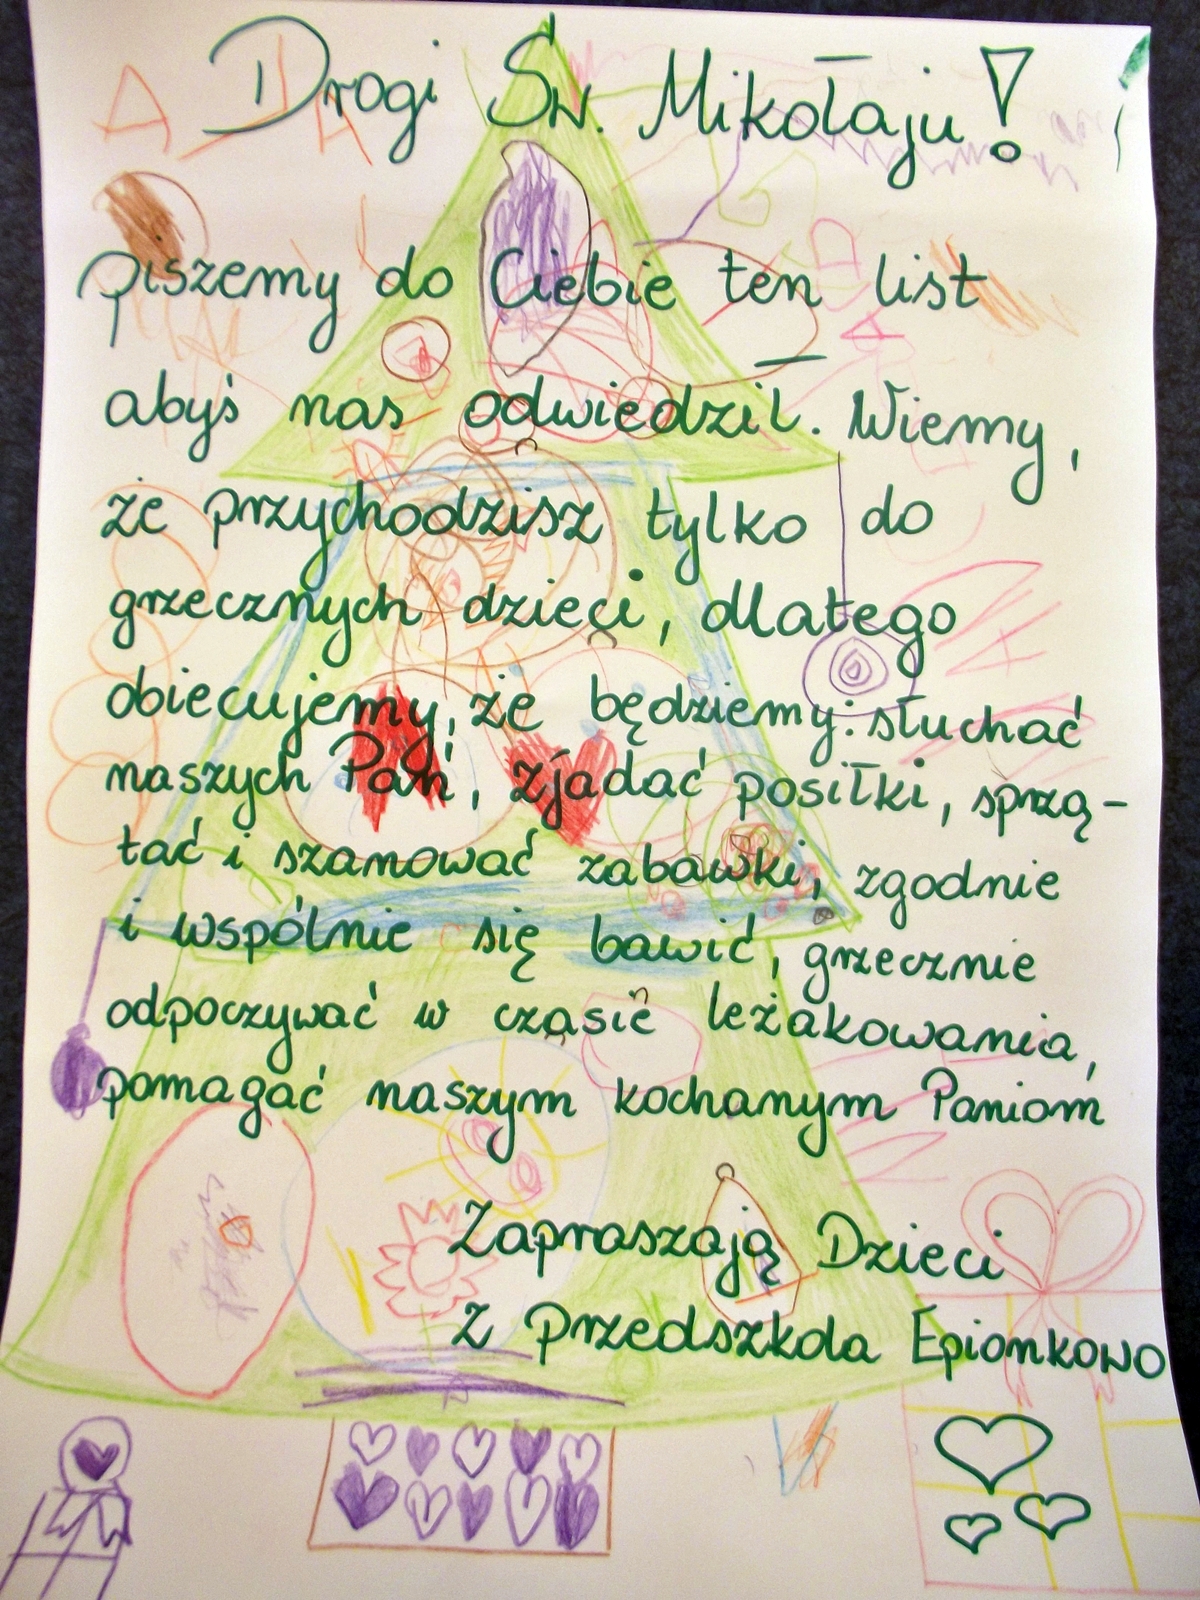 Drogi Św. Mikołaju!
piszemy do Ciebie ten list
abyś nas odwiedził. Wiemy,
że przychodzisz tylko do
grzecznych dzieci, dlatego
obiecujemy, że będziemy: słuchać
naszych Pań, zjadać posiłki, sprzą-
tać i szanować zabawki, zgodnie
i wspólnie się bawić, grzecznie
odpoczywać w czasie leżakowania,
pomagać naszym kochanym Paniom
Zapraszają Dzieci
z przedszkola Epionkowo